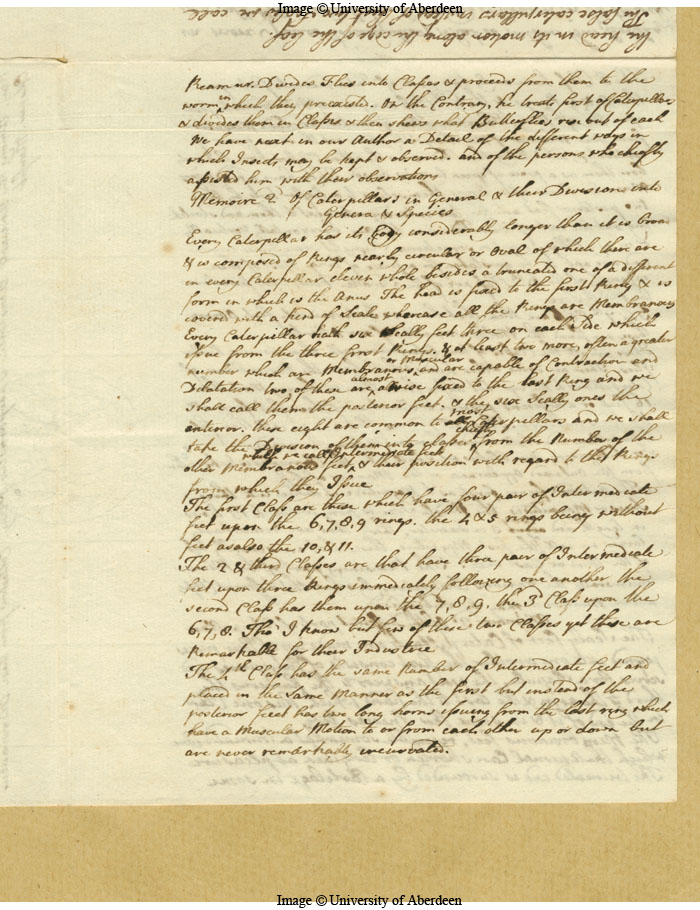 Image © University of Aberdeen
The false caterpillars in place of that have we call
the head in its motion along the edge of the leaf.
Reamur. Divides Flies into Classes & proceeds from them to the
worm in which they preexisted. On the Contrary, he treats first of Caterpillars
& divides them in Classes & then shews what Butterflies rise out of each
We have next in our Author a Detail of the different ways in
which Insects may be kept & observed. and of the persons who chiefly
assisted him with their observations
Memoire 2d Of Caterpillars in General & their Divisions into
Genera & Species
Every Caterpillar has its Body considerably longer than it is broad
& is composed of Rings nearly circular or Oval of which there are
in every Caterpillar eleven whole besides a truncated one of a different
form in which is the Anus The head is fixed to the first Ring & is
covered with a kind of Scale whereas all the Rings are Membranous
Every Caterpillar hath six Scally feet three on each Side which
issue from the three first Rings. & at least two more, often a greater
number which are Membranous or Muscular and are capable of Contraction and
Dilatation two of these are almost alwise fixed to the last Ring and we
shall call them the posterior feet. & the six Scally ones the
anterior. these eight are common to most Caterpillars and we shall
take the Division of them into classes chiefly from the Number of the
other Membranous feet, which we call Intermediate feet & their position with regard to the Rings
from which they Issue
The first Class are these which have four pair of Intermediate
feet upon the 6, 7, 8, 9 rings. the 4 & 5 rings being without
feet as also the 10, & 11.
The 2 & third Classes are that have three pair of Intermediate
feet upon three Rings immediately following one another the
second Class has them upon the 7, 8, 9, the 3d Class upon the
6, 7, 8. Tho' I know but few of these two Classes yet these are
Remarkable for their Industrie
The 4th Class has the same Number of Intermediate feet and
placed in the Same Manner as the first but instead of the
posterior feet has two long horns issuing from the last ring which
have a Muscular Motion to or from each other up or down but
are never remarkably incurvated.
Image © University of Aberdeen